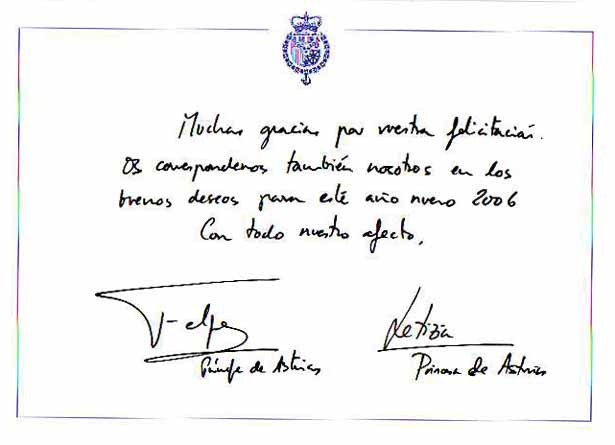 Muchas gracias por vuestra felicitación.
Os correspondemos también nosotros en los
buenos deseos para esté año nuevo 2006
Con todo nuestro afecto,
Felipe
Letizia
Príncipe de Asturias
Princesa de Asturias